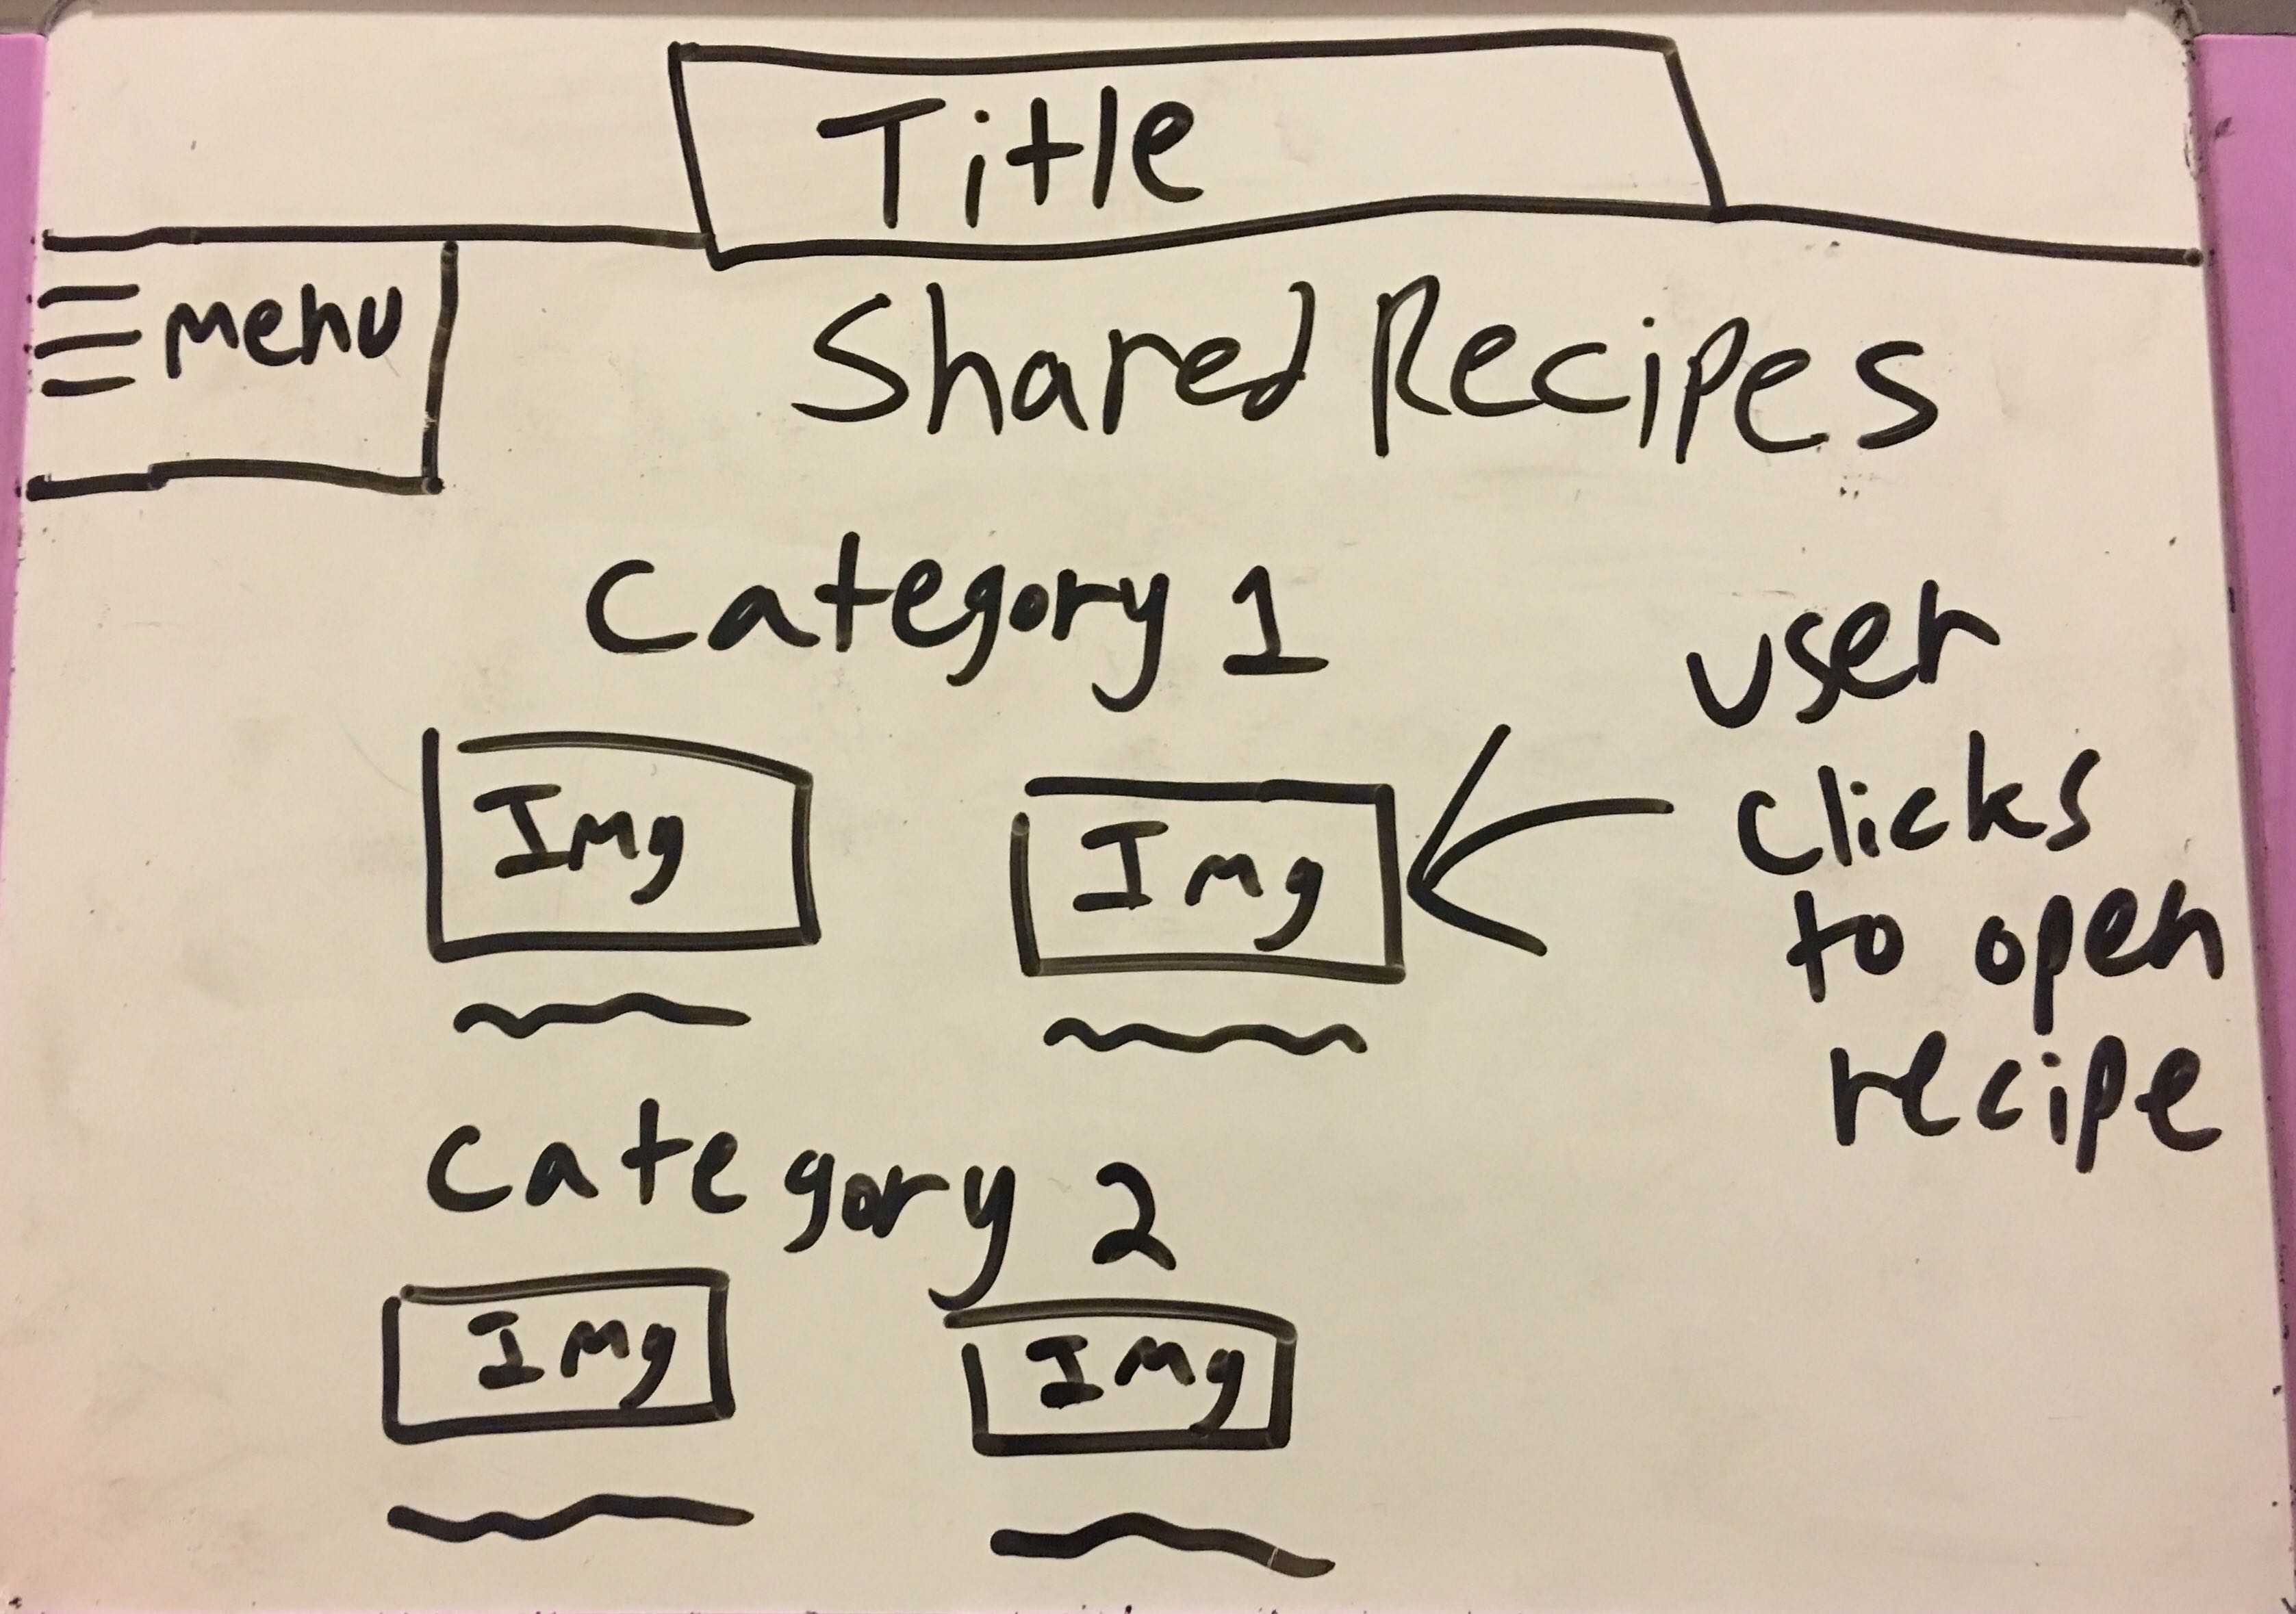 Title
Menu
Shared Recipes
Category 1
Img
Img
user
clicks
to open
recipe
Category 2
Img
Img